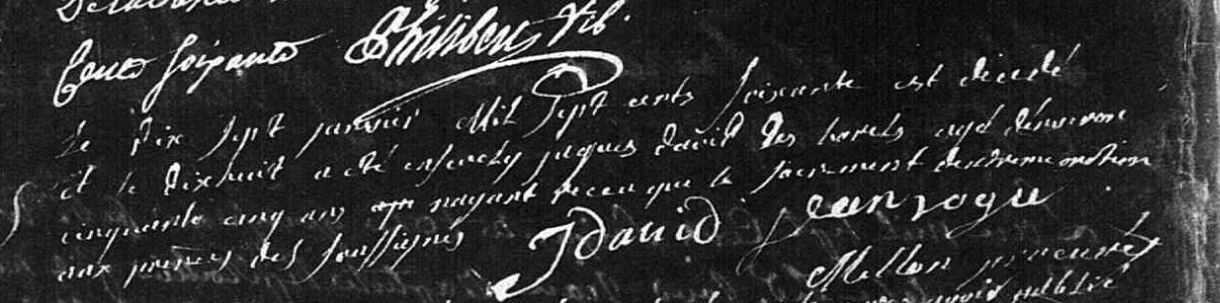 Cent Soixante Philibert Vic.
Le Dix Sept janvier Mil Sept cents Soixante est décédé
et le Dixhuit a été ensevely jaques david des harels agé denviron
cinquante cinq ans nayant receu que le sacrement dextreme onction
aux presences des soussignés JDavid Jean rogue
Mellon